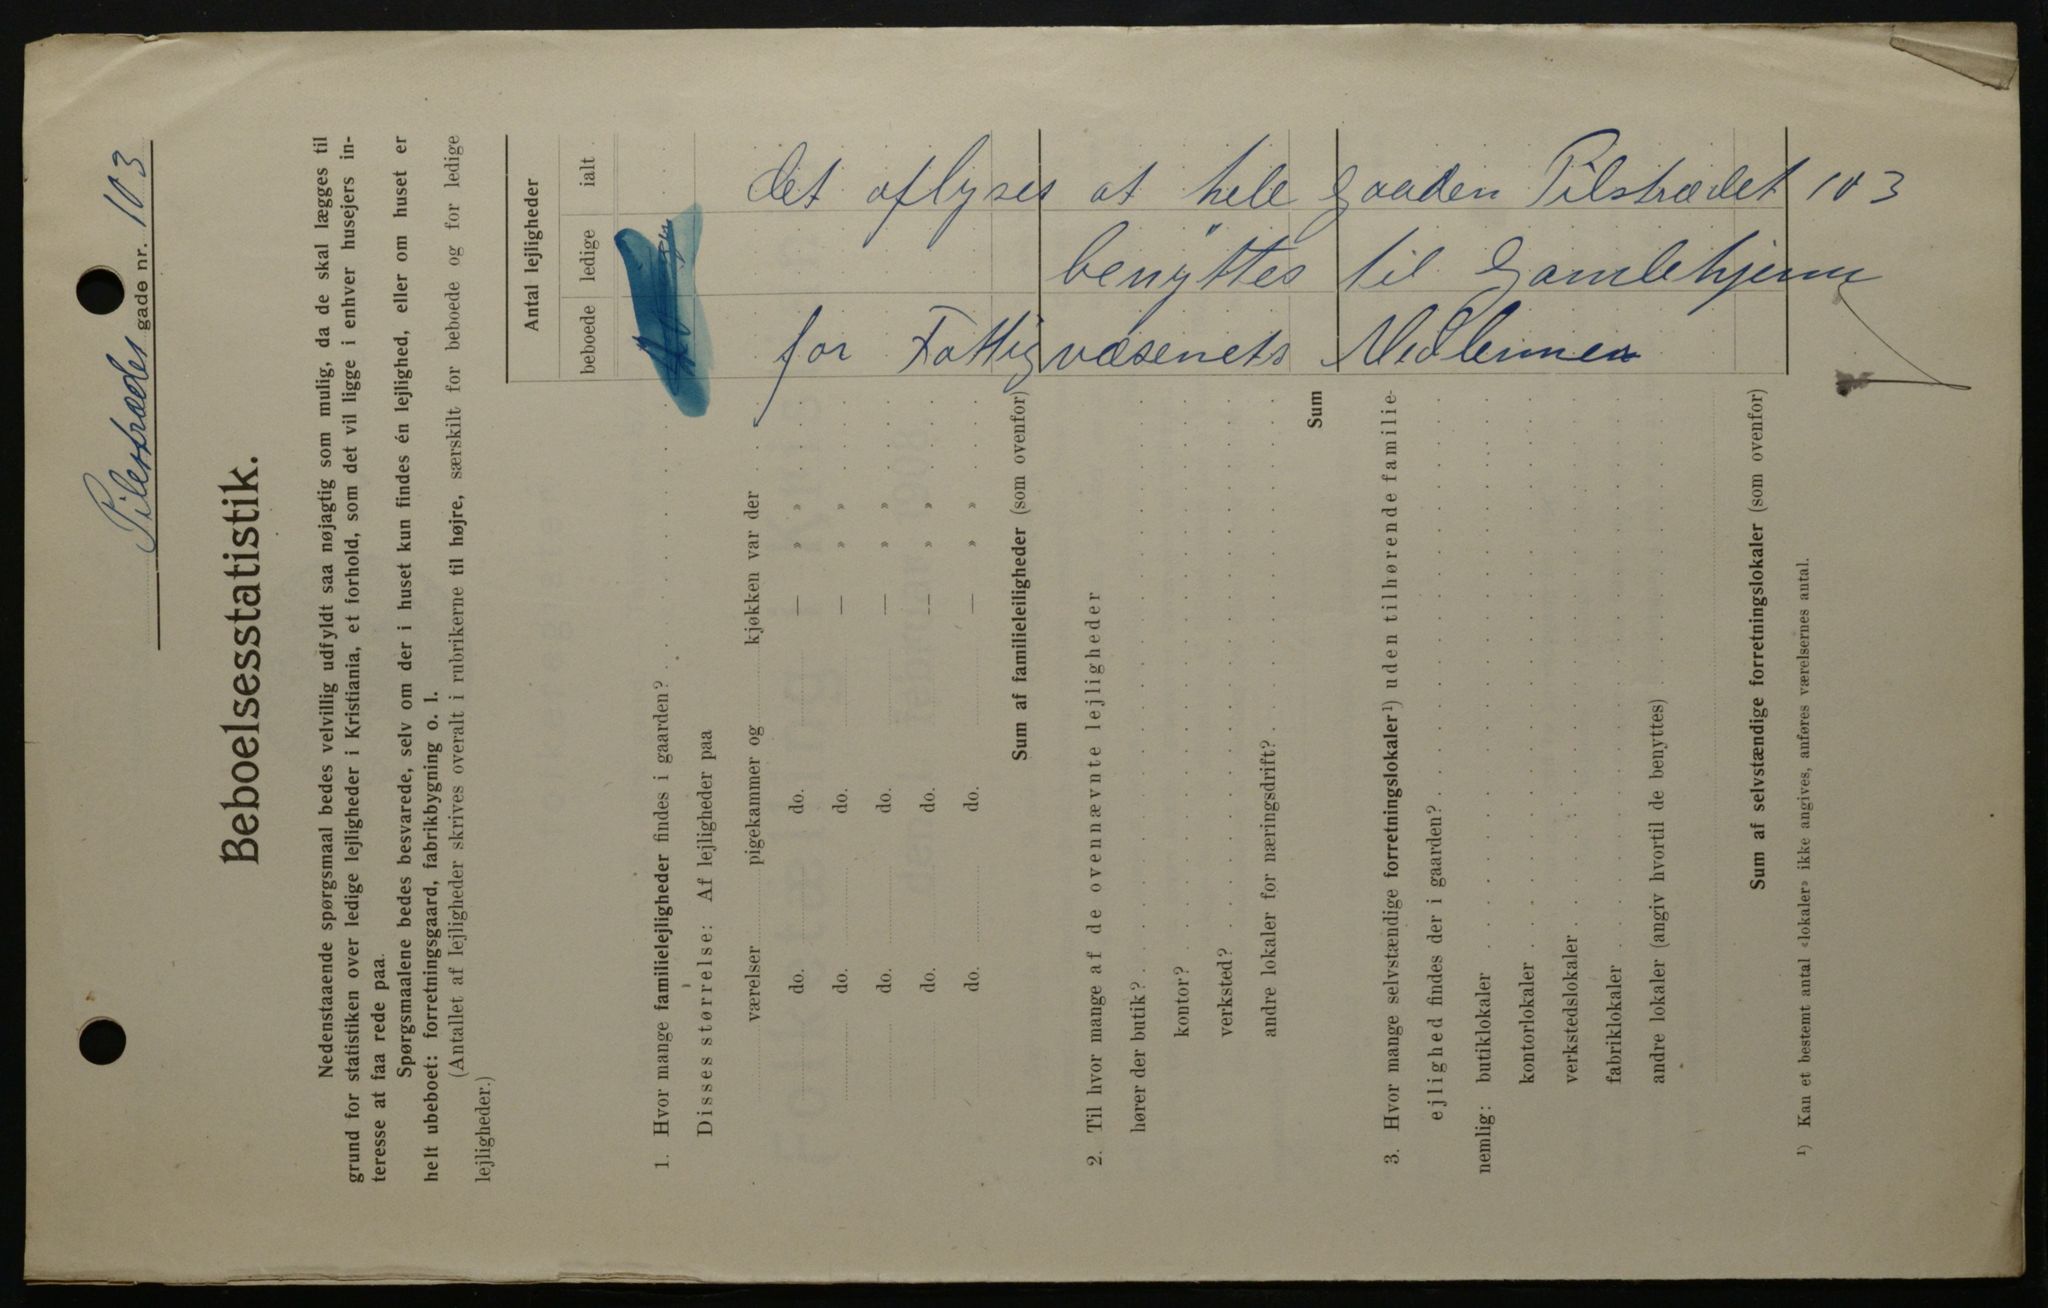 Pilestrædes gade nr. 103
Beboelsesstatistik.
Nedenstaaende spørgsmaal bedes velvillig udfyldt saa nøjagtig som mulig, da de skal lægges til
grund for statistiken over ledige lejligheder i Kristiania, et forhold, som det vil ligge i enhver husejers in-
teresse at faa rede paa.
Spørgsmaalene bedes besvarede, selv om der i huset kun findes én lejlighed, eller om huset er
helt ubeboet: forretningsgaard, fabrikbygning o. l.
(Antallet af lejligheder skrives overalt i rubrikerne til højre, særskilt for beboede og for ledige
lejligheder.)
Antal lejligheder
beboede ledige ialt
1. Hvor mange familielejligheder findes i gaarden?
Disses størrelse: Af lejligheder paa
værelser pigekammer og kjøkken var der
do. do. — » »
do. do. — » »
do. do. — » »
do. do. — » »
do. do. — » »
Sum af familieleiligheder (som ovenfor)
2. Til hvor mange af de ovennævnte lejligheder
hører der butik?
kontor?
verksted?
andre lokaler for næringsdrift?
Sum
3. Hvor mange selvstændige forretningslokaler¹) uden tilhørende familie-
ejlighed findes der i gaarden?
nemlig: butiklokaler
kontorlokaler
verkstedslokaler
fabriklokaler
andre lokaler (angiv hvortil de benyttes)
Sum af selvstændige forretningslokaler (som ovenfor)
¹) Kan et bestemt antal «lokaler» ikke angives, anføres værelsernes antal.
det oflyses at hele Gaarden Pilstrædet 103
benyttes til Gamlehjem
for Fattigvæsenets Medlemmer